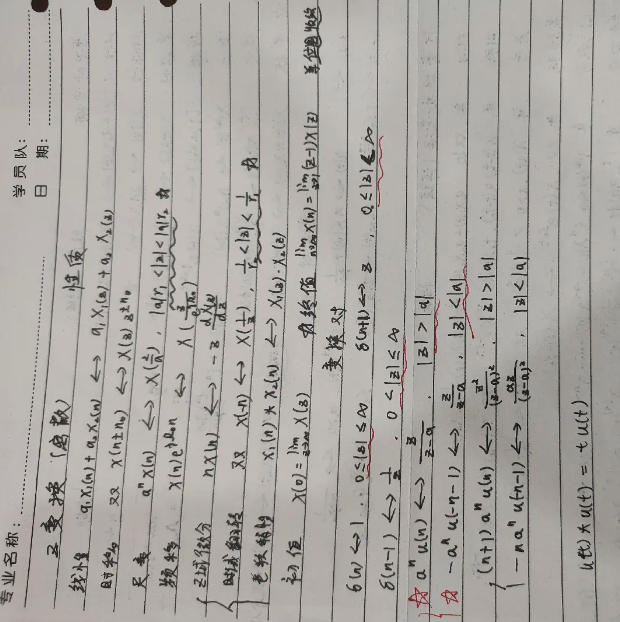 专业名称: 学员队:
日 期:
Z变换(离散) 性质
线性 a₁x₁(n)+a₂x₂(n) ↔ a₁X₁(z)+a₂X₂(z)
时移 双 x(n±n₀) ↔ X(z)z^{±n₀}
尺度 aⁿx(n) ↔ X(z/a), |a|r₁<|z|<|a|r₂
频移 x(n)e^{jΩ₀n} ↔ X(z/e^{jΩ₀})
z域微分 nx(n) ↔ -z dX(z)/dz
时域翻转 双 x(-n) ↔ X(1/z), 1/r₂<|z|<1/r₁
x₁(n)*x₂(n) ↔ X₁(z)·X₂(z)
初值 x(0)=lim_{z→∞}X(z) 终值 lim_{n→∞}x(n)=lim_{z→1}(z-1)X(z) 单位圆收敛
变换对
δ(n) ↔ 1, 0≤|z|≤∞ δ(n+1) ↔ z, 0≤|z|<∞
δ(n-1) ↔ 1/z, 0<|z|≤∞
☆ aⁿu(n) ↔ z/(z-a), |z|>|a|
☆ -aⁿu(-n-1) ↔ z/(z-a), |z|<|a|
(n+1)aⁿu(n) ↔ z²/(z-a)², |z|>|a|
-naⁿu(-n-1) ↔ az/(z-a)², |z|<|a|
u(t)*u(t)=tu(t)